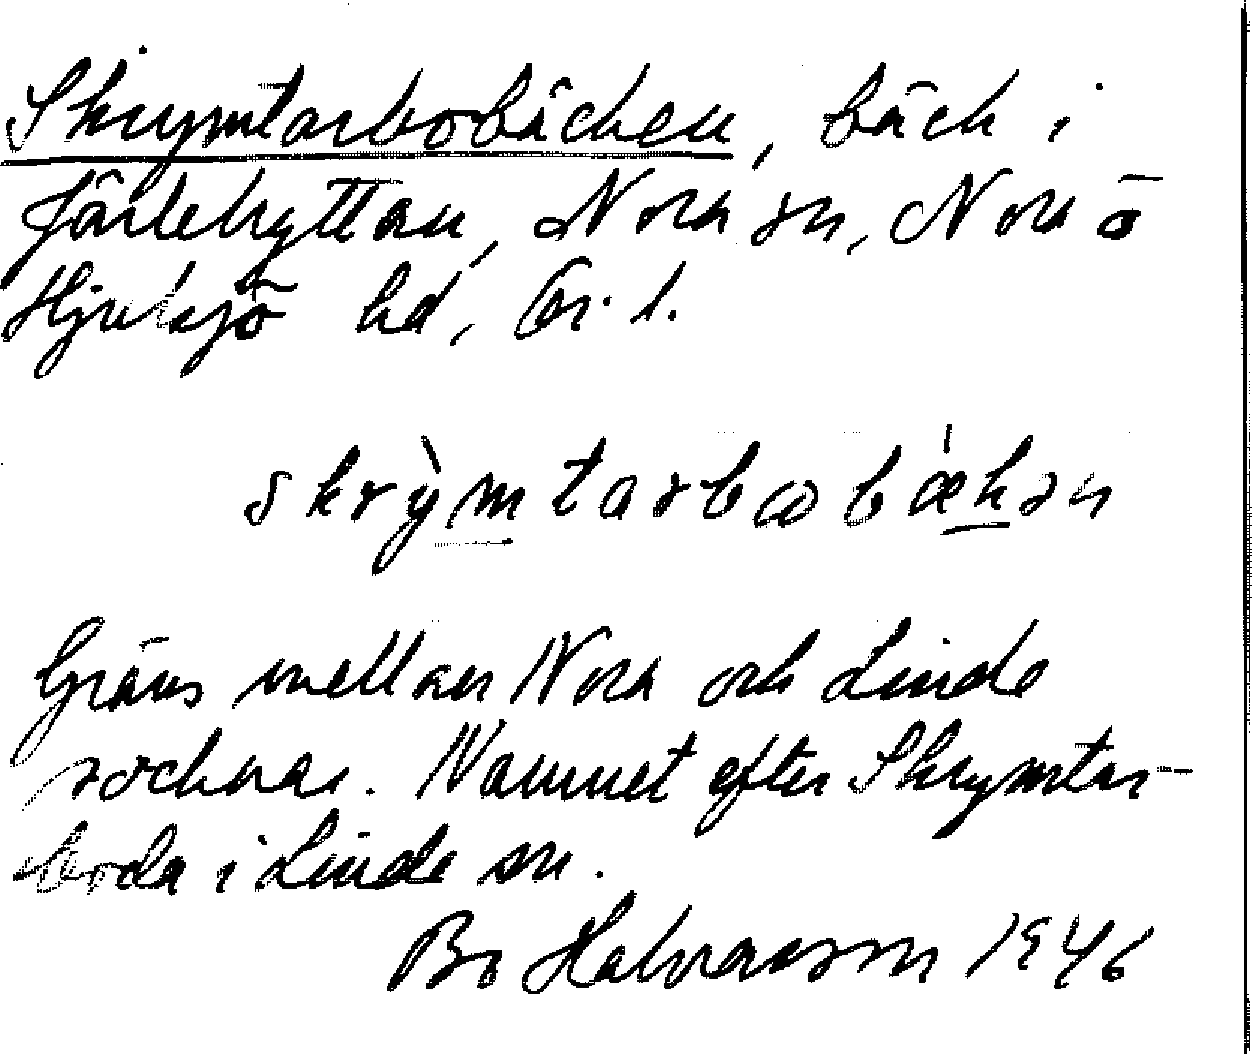 Skrymtarbobäcken, bäck i
Järlehyttan, Nora sn, Nora o
Hjulsjö hd, Ör. l.
skrỳmtarbωbǽkən
Gräns mellan Nora och Linde
socknar. Namnet efter Skrymtar-
boda i Linde sn.
Bo Halvarsson 1946